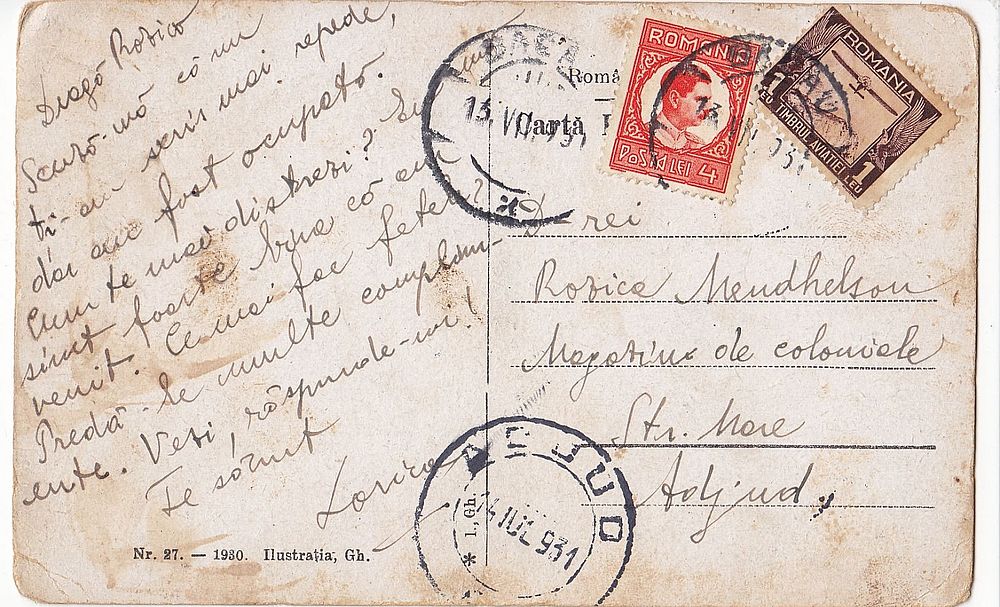 Dragă Rozica
Scuză-mă că nu
ti-am scris mai repede,
dar am fost ocupată.
Cum te mai distrezi? Eu
sînt foarte bine că am
venit. Ce mai fac fetele
Predă-le multe complim-
ente. Vezi, răspunde-mi!
Te sărut
Nr. 27. — 1930. Ilustrația, Gh.
Româ
Cartă
ROMANIA
POSTA LEI 4
ROMANIA
TIMBRUL AVIATIEI
1 LEU
1 LEU
BACAU
13. VII. 931
D-rei
Rozica Mendhelson
Magazin de coloniale
Str. Mare
Adjud
ADJUD
14 IUL 931
* I., Gh.